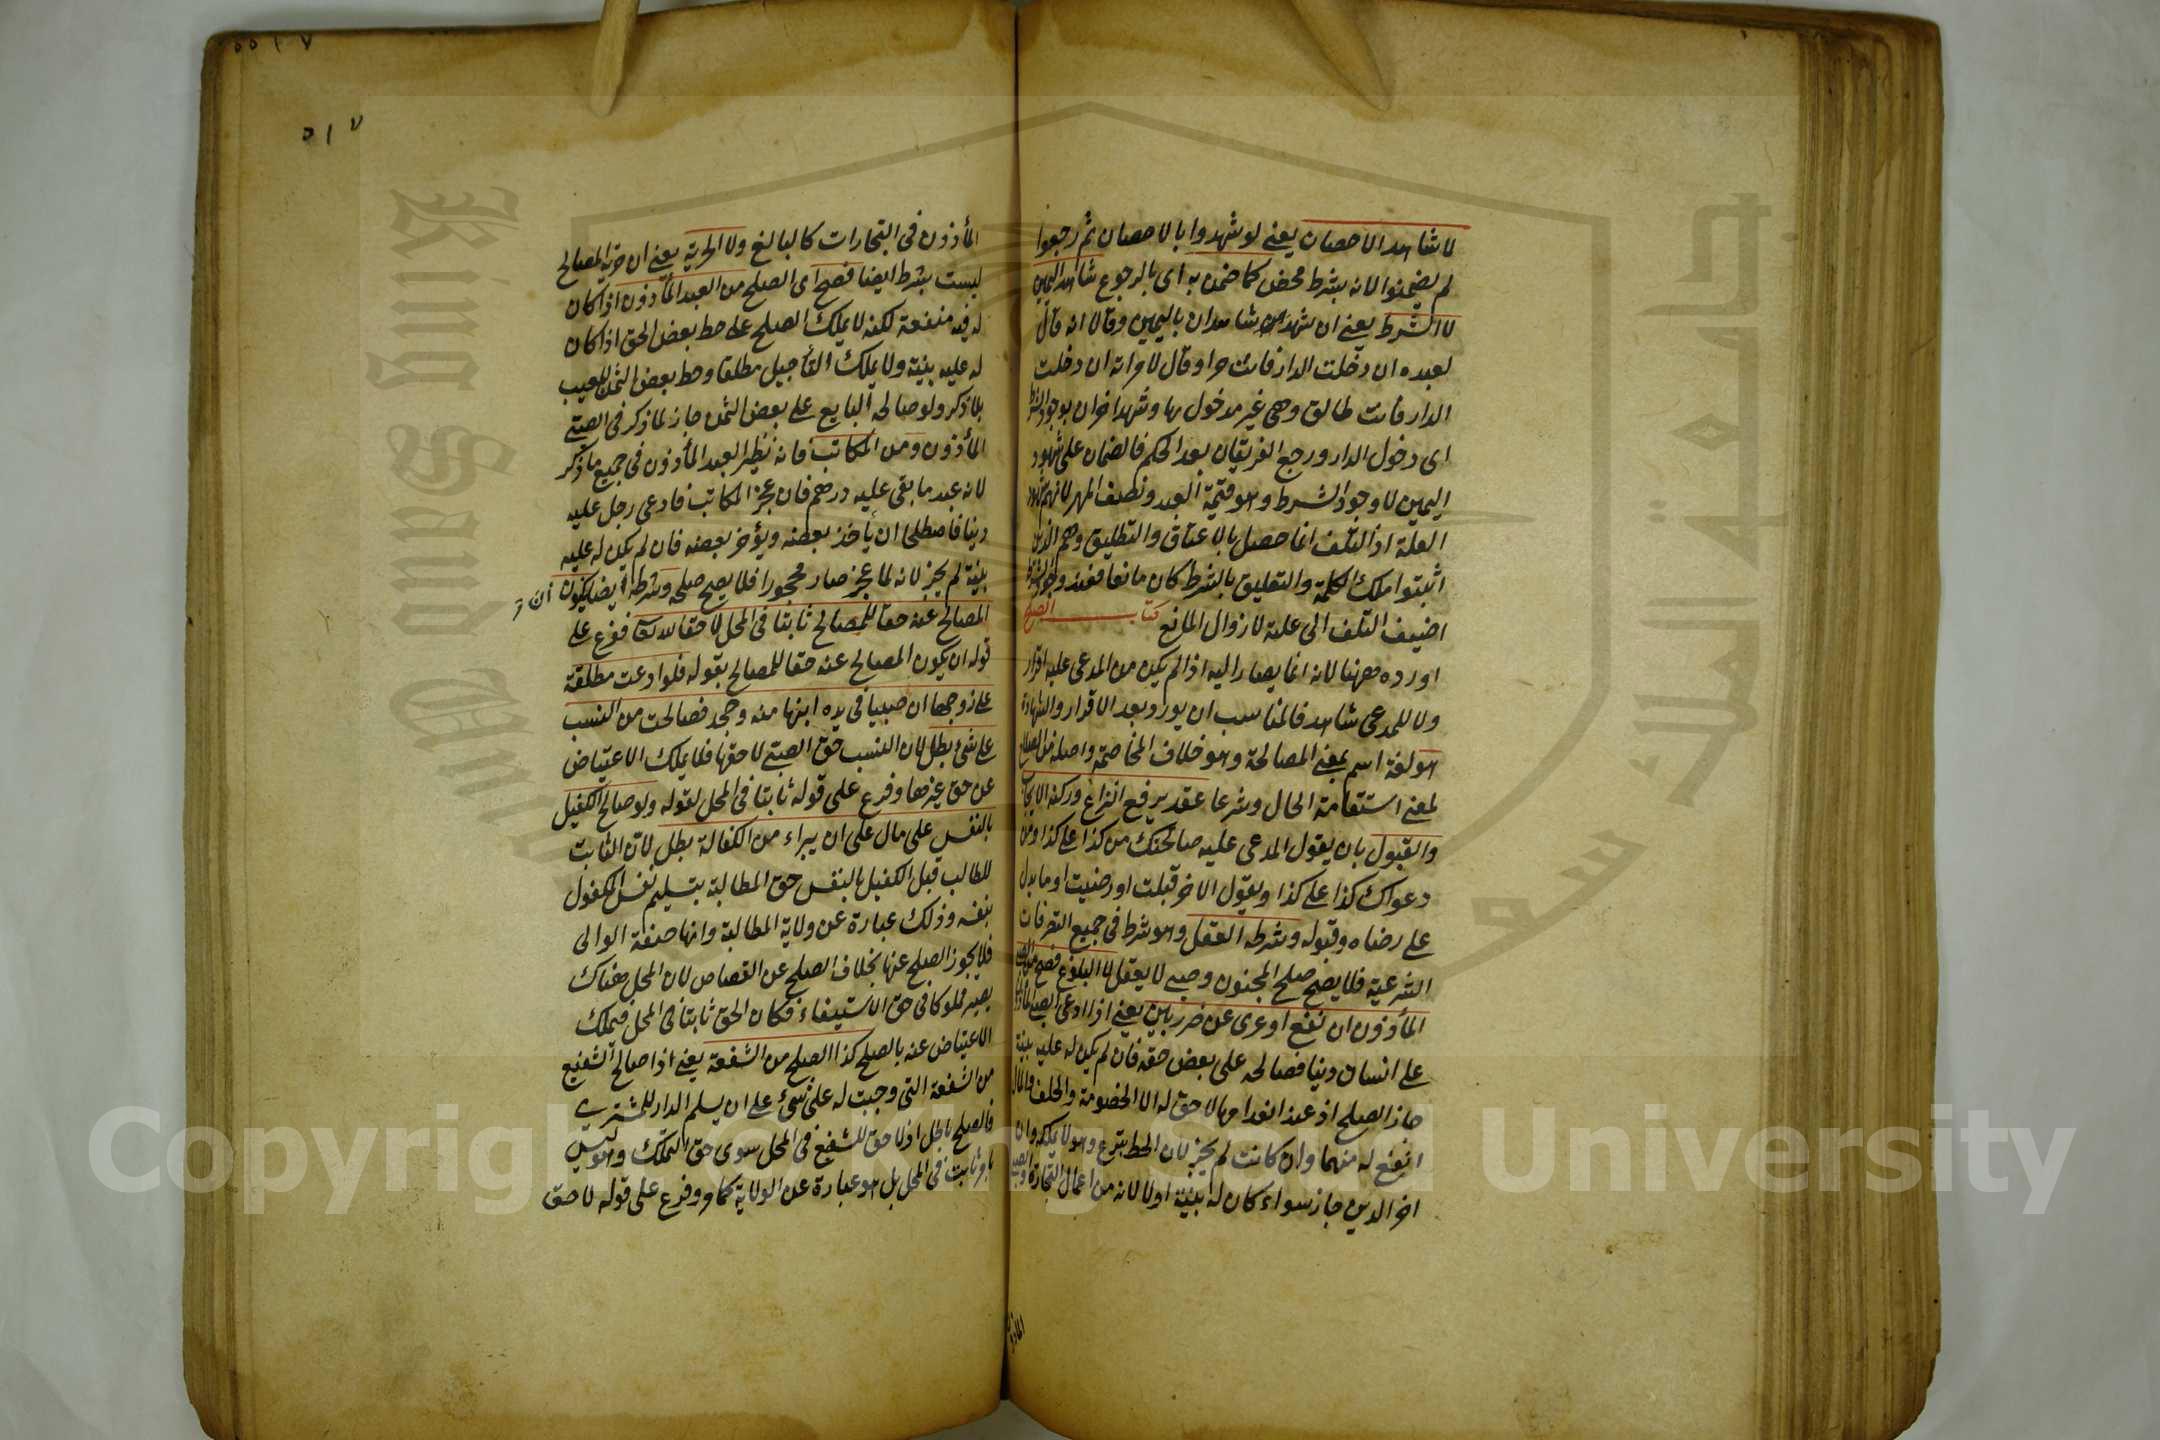 لا شاهد الاحصان يعنى لو شهدوا بالاحصان ثم رجعوا
لم يضمنوا لانه شرط محض كما ضمن به اى بالرجوع شاهد اليمين
لا الشرط يعنى ان شهد شاهدان باليمين وقالا انه قال
لعبده ان دخلت الدار فانت حر او قال لامراته ان دخلت
الدار فانت طالق وهى غير مدخول بها وشهد اخران بوجود الشرط
اى دخول الدار ورجع الفريقان بعد الحكم فالضمان على شهود
اليمين لا وجود الشرط وهو قيمة العبد ونصف المهر لانهم شهود
العلة اذ التلف انما حصل بالاعتاق والتطليق وهم الذين
اثبتوا ملك الكلمة والتعليق بالشرط كان مانعا فعند وجود الشرط
اضيف التلف الى علة لا زوال المانع كتاب الصلح
اورده ههنا لانه انما يصار اليه اذا لم يكن من المدعى عليه اقرار
ولا للمدعى شاهد فالمناسب ان يورد بعد الاقرار والشهادة
هو لغة اسم بمعنى المصالحة وهو خلاف المخاصمة واصله من الصلاح
بمعنى استقامة الحال وشرعا عقد يرفع النزاع وركنه الايجاب
والقبول بان يقول المدعى عليه صالحتك من كذا على كذا او من
دعواك كذا على كذا ويقول الاخر قبلت او رضيت او ما يدل
على رضاه وقبوله وشرطه العقل وهو شرط فى جميع التصرفات
الشرعية فلا يصح صلح المجنون وصبى لا يعقل لا البلوغ فصح من الصبى
المأذون ان نفع او عرى عن ضرر بين يعنى اذا ادعى الصبى المأذون
على انسان دينا فصالحه على بعض حقه فان لم يكن له عليه بينة
جاز الصلح اذ عند انعدامها لا حق له الا الخصومة والحلف والمال
انفع له منهما وان كانت لم يجز لان الحط تبرع وهو لا يملكه وان
اخر الدين جاز سواء كان له بينة او لا لانه من اعمال التجارة والصبى
المأذون
٥٥١٧
٥١٧
المأذون فى التجارات كالبالغ ولا الحرية يعنى ان حرية المصالح
ليست بشرط ايضا فصح اى الصلح من العبد المأذون اذا كان
له فيه منفعة لكنه لا يملك الصلح على حط بعض الحق اذا كان
له عليه بينة ولا يملك التأجيل مطلقا وحط بعض الثمن للعيب
بلا ذكر ولو صالحه البايع على بعض الثمن جاز لما ذكر فى الصبى
المأذون ومن المكاتب فانه نظير العبد المأذون فى جميع ما ذكر
لانه عبد ما بقى عليه درهم فان عجز المكاتب فادعى رجل عليه
دينا فاصطلحا ان يأخذ بعضه ويؤخر بعضه فان لم يكن له عليه
بينة لم يجز لانه لما عجز صار محجورا فلا يصح صلحه وشرطه ايضا ان يكون
المصالح عنه حقا للمصالح ثابتا فى المحل لا حقا لله تعالى فرع على
قوله ان يكون المصالح عنه حقا للمصالح بقوله فلو ادعت مطلقة
على زوجها ان صبيا فى يده ابنها منه وجحد فصالحت من النسب
على شئ بطل لان النسب حق الصبى لا حقها فلا يملك الاعتياض
عن حق غيرها وفرع على قوله ثابتا فى المحل بقوله ولو صالح الكفيل
بالنفس على مال على ان يبراء من الكفالة بطل لان الثابت
للطالب قبل الكفيل بالنفس حق المطالبة بتسليم نفس المكفول
بنفسه وذلك عبارة عن ولاية المطالبة وانها صفة الوالى
فلا يجوز الصلح عنها بخلاف الصلح عن القصاص لان المحل هناك
يصير مملوكا فى حق الاستيفاء فكان الحق ثابتا فى المحل فيملك
الاعتياض عنه بالصلح كذا الصلح من الشفعة يعنى اذا صالح الشفيع
من الشفعة التى وجبت له على شئ على ان يسلم الدار للمشترى
فالصلح باطل اذ لا حق للشفيع فى المحل سوى حق التملك وهو ليس
بامر ثابت فى المحل بل هو عبارة عن الولاية كما مر وفرع على قوله لا حق
King Saud University
جامعة الملك سعود
Copyright © King Saud University